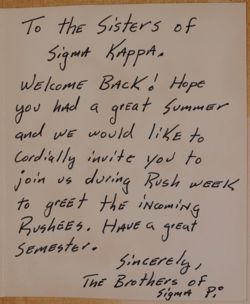 To the Sisters of
Sigma Kappa.
Welcome Back! Hope
you had a great summer
and we would like to
cordially invite you to
join us during Rush week
to greet the incoming
Rushees. Have a great
semester.
Sincerely,
The Brothers of
Sigma Pi